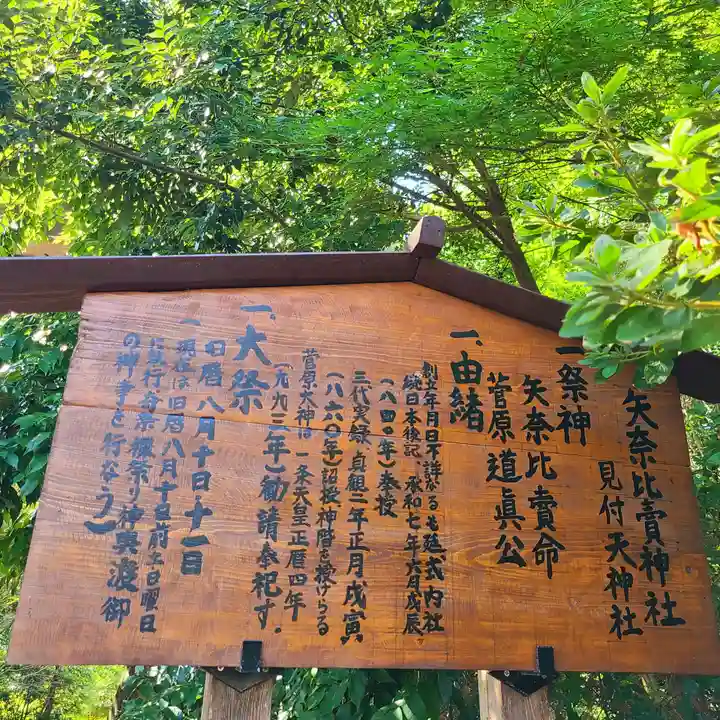 矢奈比賣神社
見付天神社
一、祭神
矢奈比賣命
菅原道眞公
一、由緒
創立年月日不詳なるも延式内社
続日本後記、承和七年六月戊辰
(八四〇年)奉授
三代実録、貞観二年正月戊寅
(八六〇年)詔授神階を授けらる
菅原大神は一条天皇正暦四年
(九九三年)勧請奉祀す。
一、大祭
旧暦八月十日・十一日
現在は旧暦八月十日前土日曜日
に斎行
の神事を行なう)